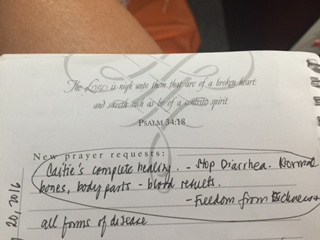 The LORD is nigh unto them that are of a broken heart;
and saveth such as be of a contrite spirit.
PSALM 34:18
New prayer requests:
Caitie's complete healing. - Stop Diarrhea. Normal
bones, body parts - blood results.
- Freedom from Sickness
all forms of disease
20, 2016